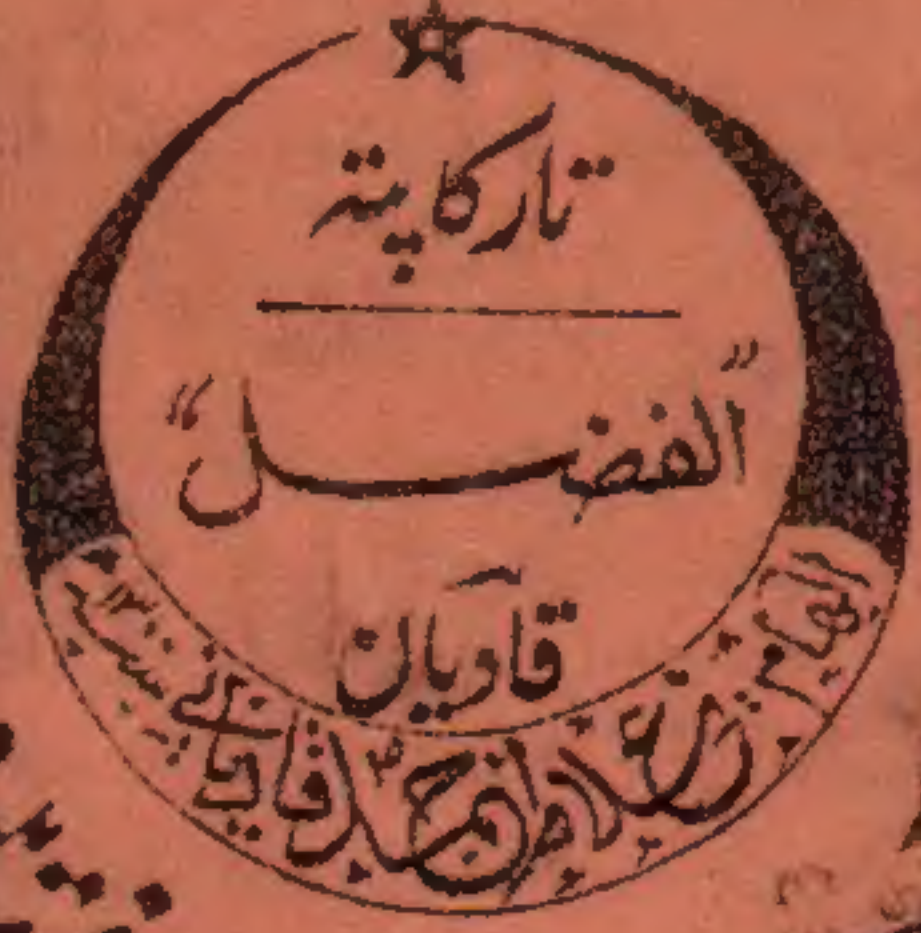 تار کا پتہ
"الفضل"
قادیان
غلام احمد قادیانی